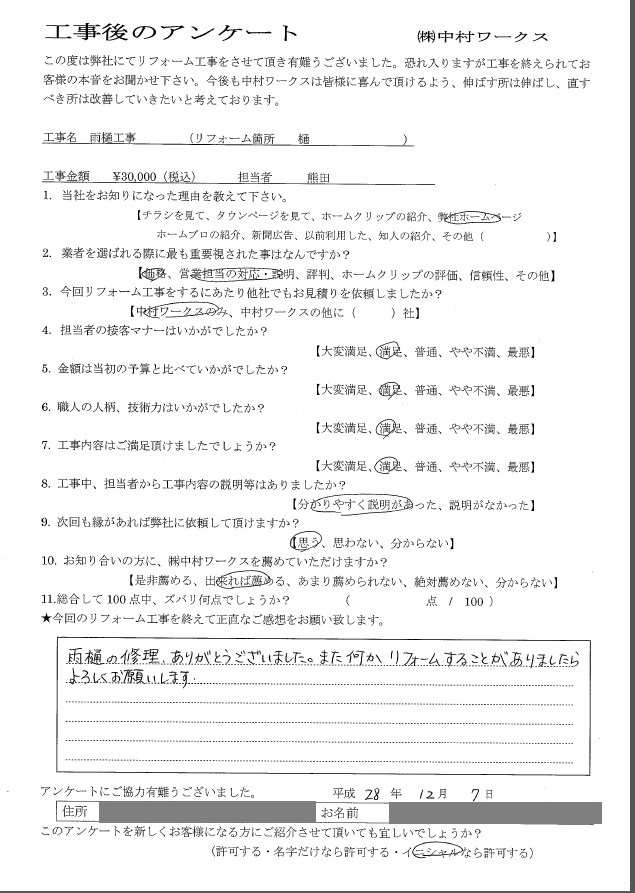 工事後のアンケート ㈱中村ワークス
この度は弊社にてリフォーム工事をさせて頂き有難うございました。恐れ入りますが工事を終えられてお
客様の本音をお聞かせ下さい。今後も中村ワークスは皆様に喜んで頂けるよう、伸ばす所は伸ばし、直す
べき所は改善していきたいと考えております。
工事名 雨樋工事 （リフォーム箇所 樋 ）
工事金額 ¥30,000（税込） 担当者 熊田
1. 当社をお知りになった理由を教えて下さい。
【チラシを見て、タウンページを見て、ホームクリップの紹介、弊社ホームページ
ホームプロの紹介、新聞広告、以前利用した、知人の紹介、その他（ ）】
2. 業者を選ばれる際に最も重要視された事はなんですか？
【価格、営業担当の対応・説明、評判、ホームクリップの評価、信頼性、その他】
3. 今回リフォーム工事をするにあたり他社でもお見積りを依頼しましたか？
【中村ワークスのみ、中村ワークスの他に（ ）社】
4. 担当者の接客マナーはいかがでしたか？
【大変満足、満足、普通、やや不満、最悪】
5. 金額は当初の予算と比べていかがでしたか？
【大変満足、満足、普通、やや不満、最悪】
6. 職人の人柄、技術力はいかがでしたか？
【大変満足、満足、普通、やや不満、最悪】
7. 工事内容はご満足頂けましたでしょうか？
【大変満足、満足、普通、やや不満、最悪】
8. 工事中、担当者から工事内容の説明等はありましたか？
【分かりやすく説明があった、説明がなかった】
9. 次回も縁があれば弊社に依頼して頂けますか？
【思う、思わない、分からない】
10. お知り合いの方に、㈱中村ワークスを薦めていただけますか？
【是非薦める、出来れば薦める、あまり薦められない、絶対薦めない、分からない】
11.総合して 100 点中、ズバリ何点でしょうか？ （ 点 / 100 ）
★今回のリフォーム工事を終えて正直なご感想をお願い致します。
雨樋の修理、ありがとうございました。また何か、リフォームすることがありましたら
よろしくお願いします.
アンケートにご協力有難うございました。 平成 28 年 12 月 7 日
住所 お名前
このアンケートを新しくお客様になる方にご紹介させて頂いても宜しいでしょうか？
（許可する・名字だけなら許可する・イニシャルなら許可する）